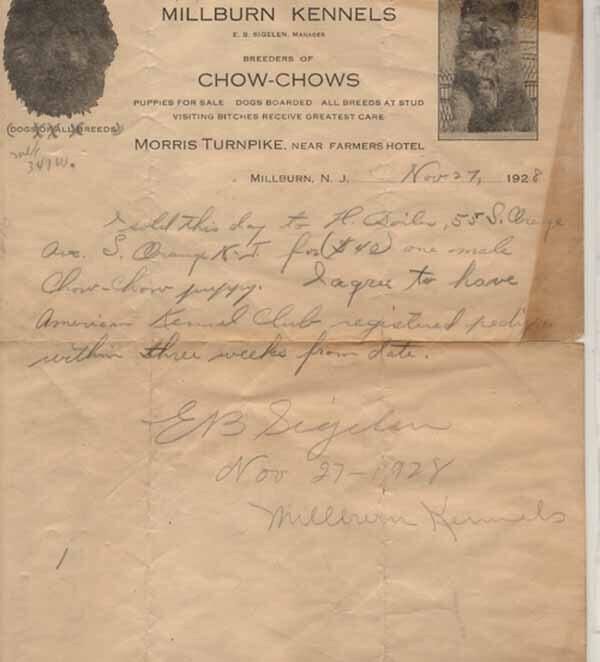 MILLBURN KENNELS
E. B. SIGELEN, MANAGER
BREEDERS OF
CHOW-CHOWS
PUPPIES FOR SALE DOGS BOARDED ALL BREEDS AT STUD
VISITING BITCHES RECEIVE GREATEST CARE
(DOGS OF ALL BREEDS)
MORRIS TURNPIKE, NEAR FARMERS HOTEL
349 W.
MILLBURN, N. J. Nov 27, 1928
I sold this day to H. 55 S. Orange
Ave. S. Orange N.J. for ($40) one male
Chow-Chow puppy. I agree to have
American Kennel Club registered
within three weeks from date.
EB Sigelen
Nov 27-1928
Millburn Kennels